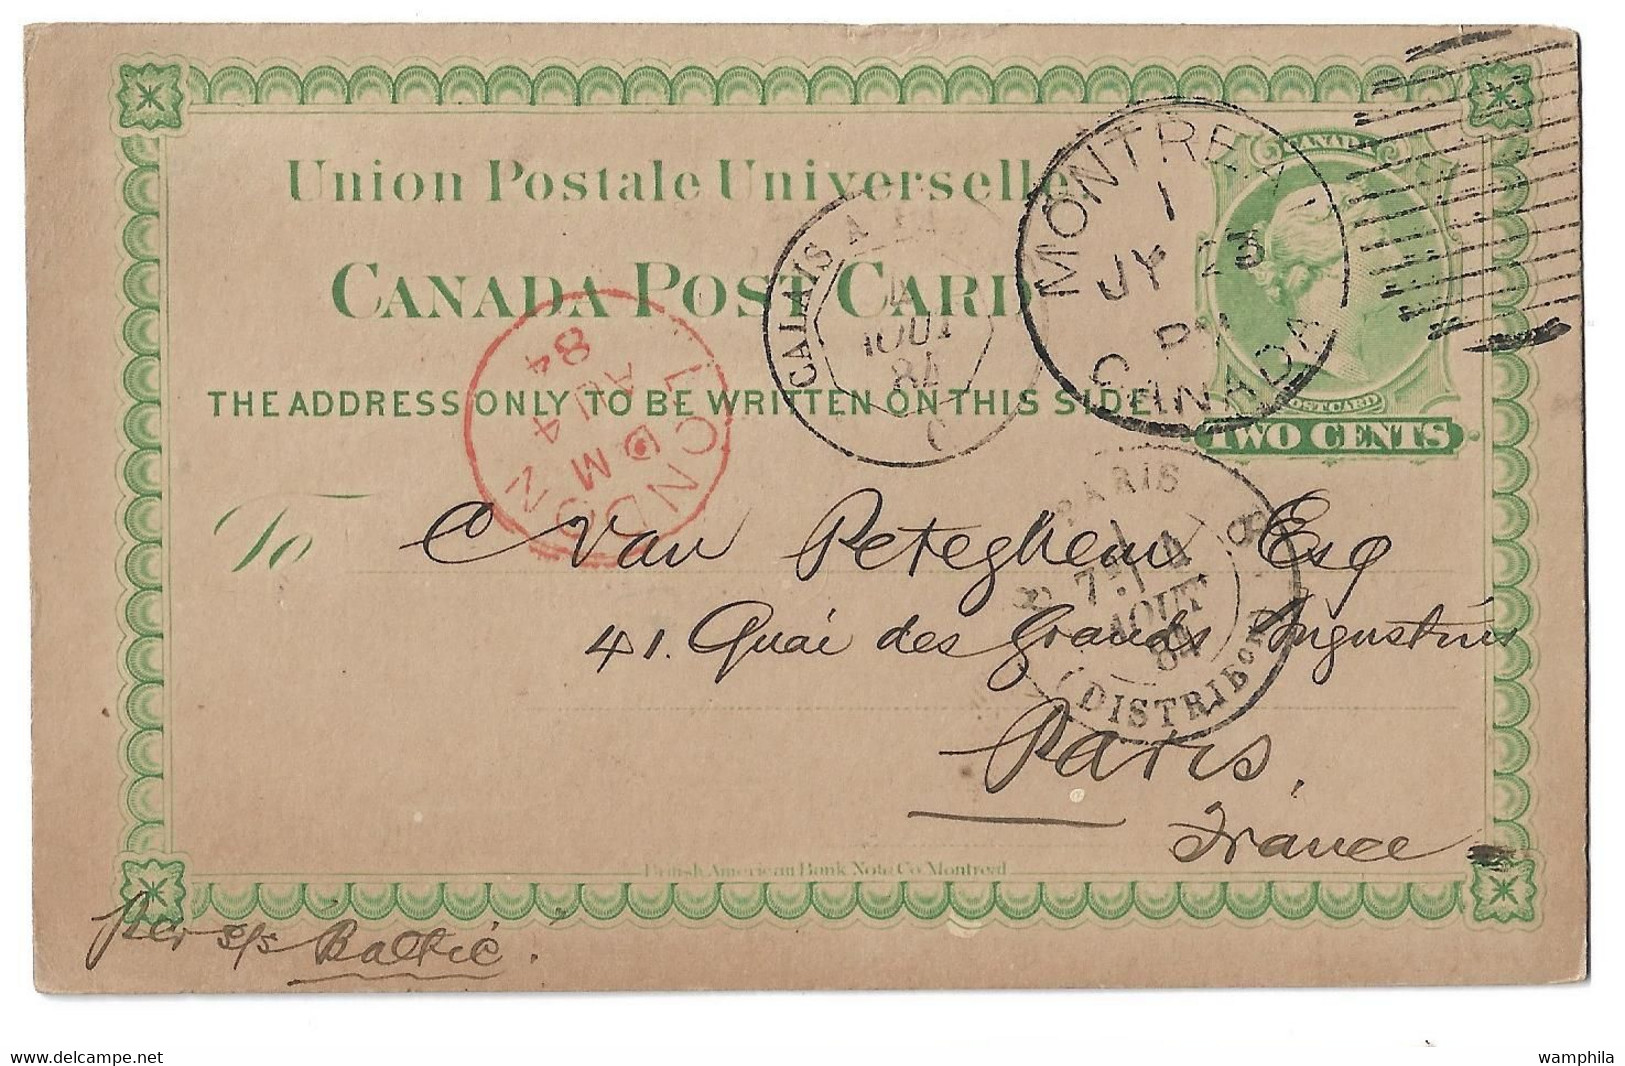 Union Postale Universelle
CANADA POST CARD
THE ADDRESS ONLY TO BE WRITTEN ON THIS SIDE
CANADA
POST CARD
TWO CENTS
MONTREAL
1
JY 23
PM
CANADA
CALAIS A
4
AOUT
84
LONDON
D
M
AU 4
84
PARIS
4
AOUT
84
DISTRIBON
To C Van Peteghem Esq
41. Quai des Grands Augustins
Paris,
France
British American Bank Note Co. Montreal
Per s/s Baltic.
www.delcampe.net
wamphila